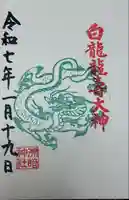 白龍龍寿大神
令和七年一月十九日